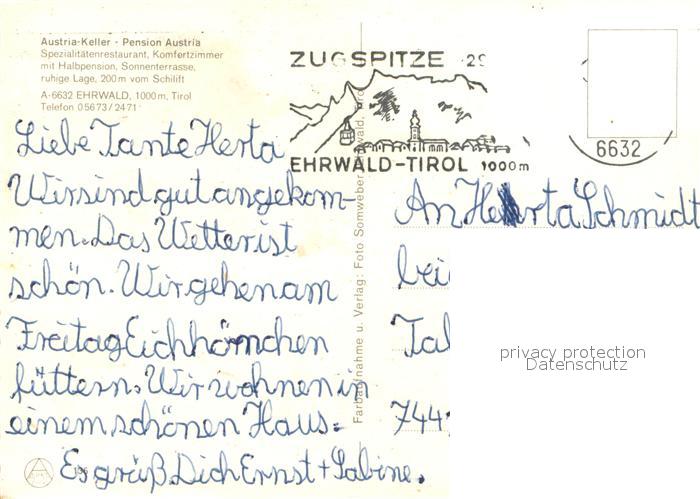 Austria-Keller - Pension Austria
Spezialitätenrestaurant, Komfortzimmer
mit Halbpension, Sonnenterrasse,
ruhige Lage, 200 m vom Schilift
A-6632 EHRWALD, 1000 m, Tirol
Telefon 05673/2471
ZUGSPITZE
EHRWALD-TIROL 1000m
6632
Liebe Tante Herta
Wir sind gut angekom-
men. Das Wetter ist
schön. Wir gehen am
Freitag Eichhörnchen
füttern. Wir wohnen in
einem schönen Haus.
Es grüß. Dich Ernst + Sabine.
Farbaufnahme u. Verlag: Foto Somweber
An Herta Schmidt
bei
744
privacy protection
Datenschutz